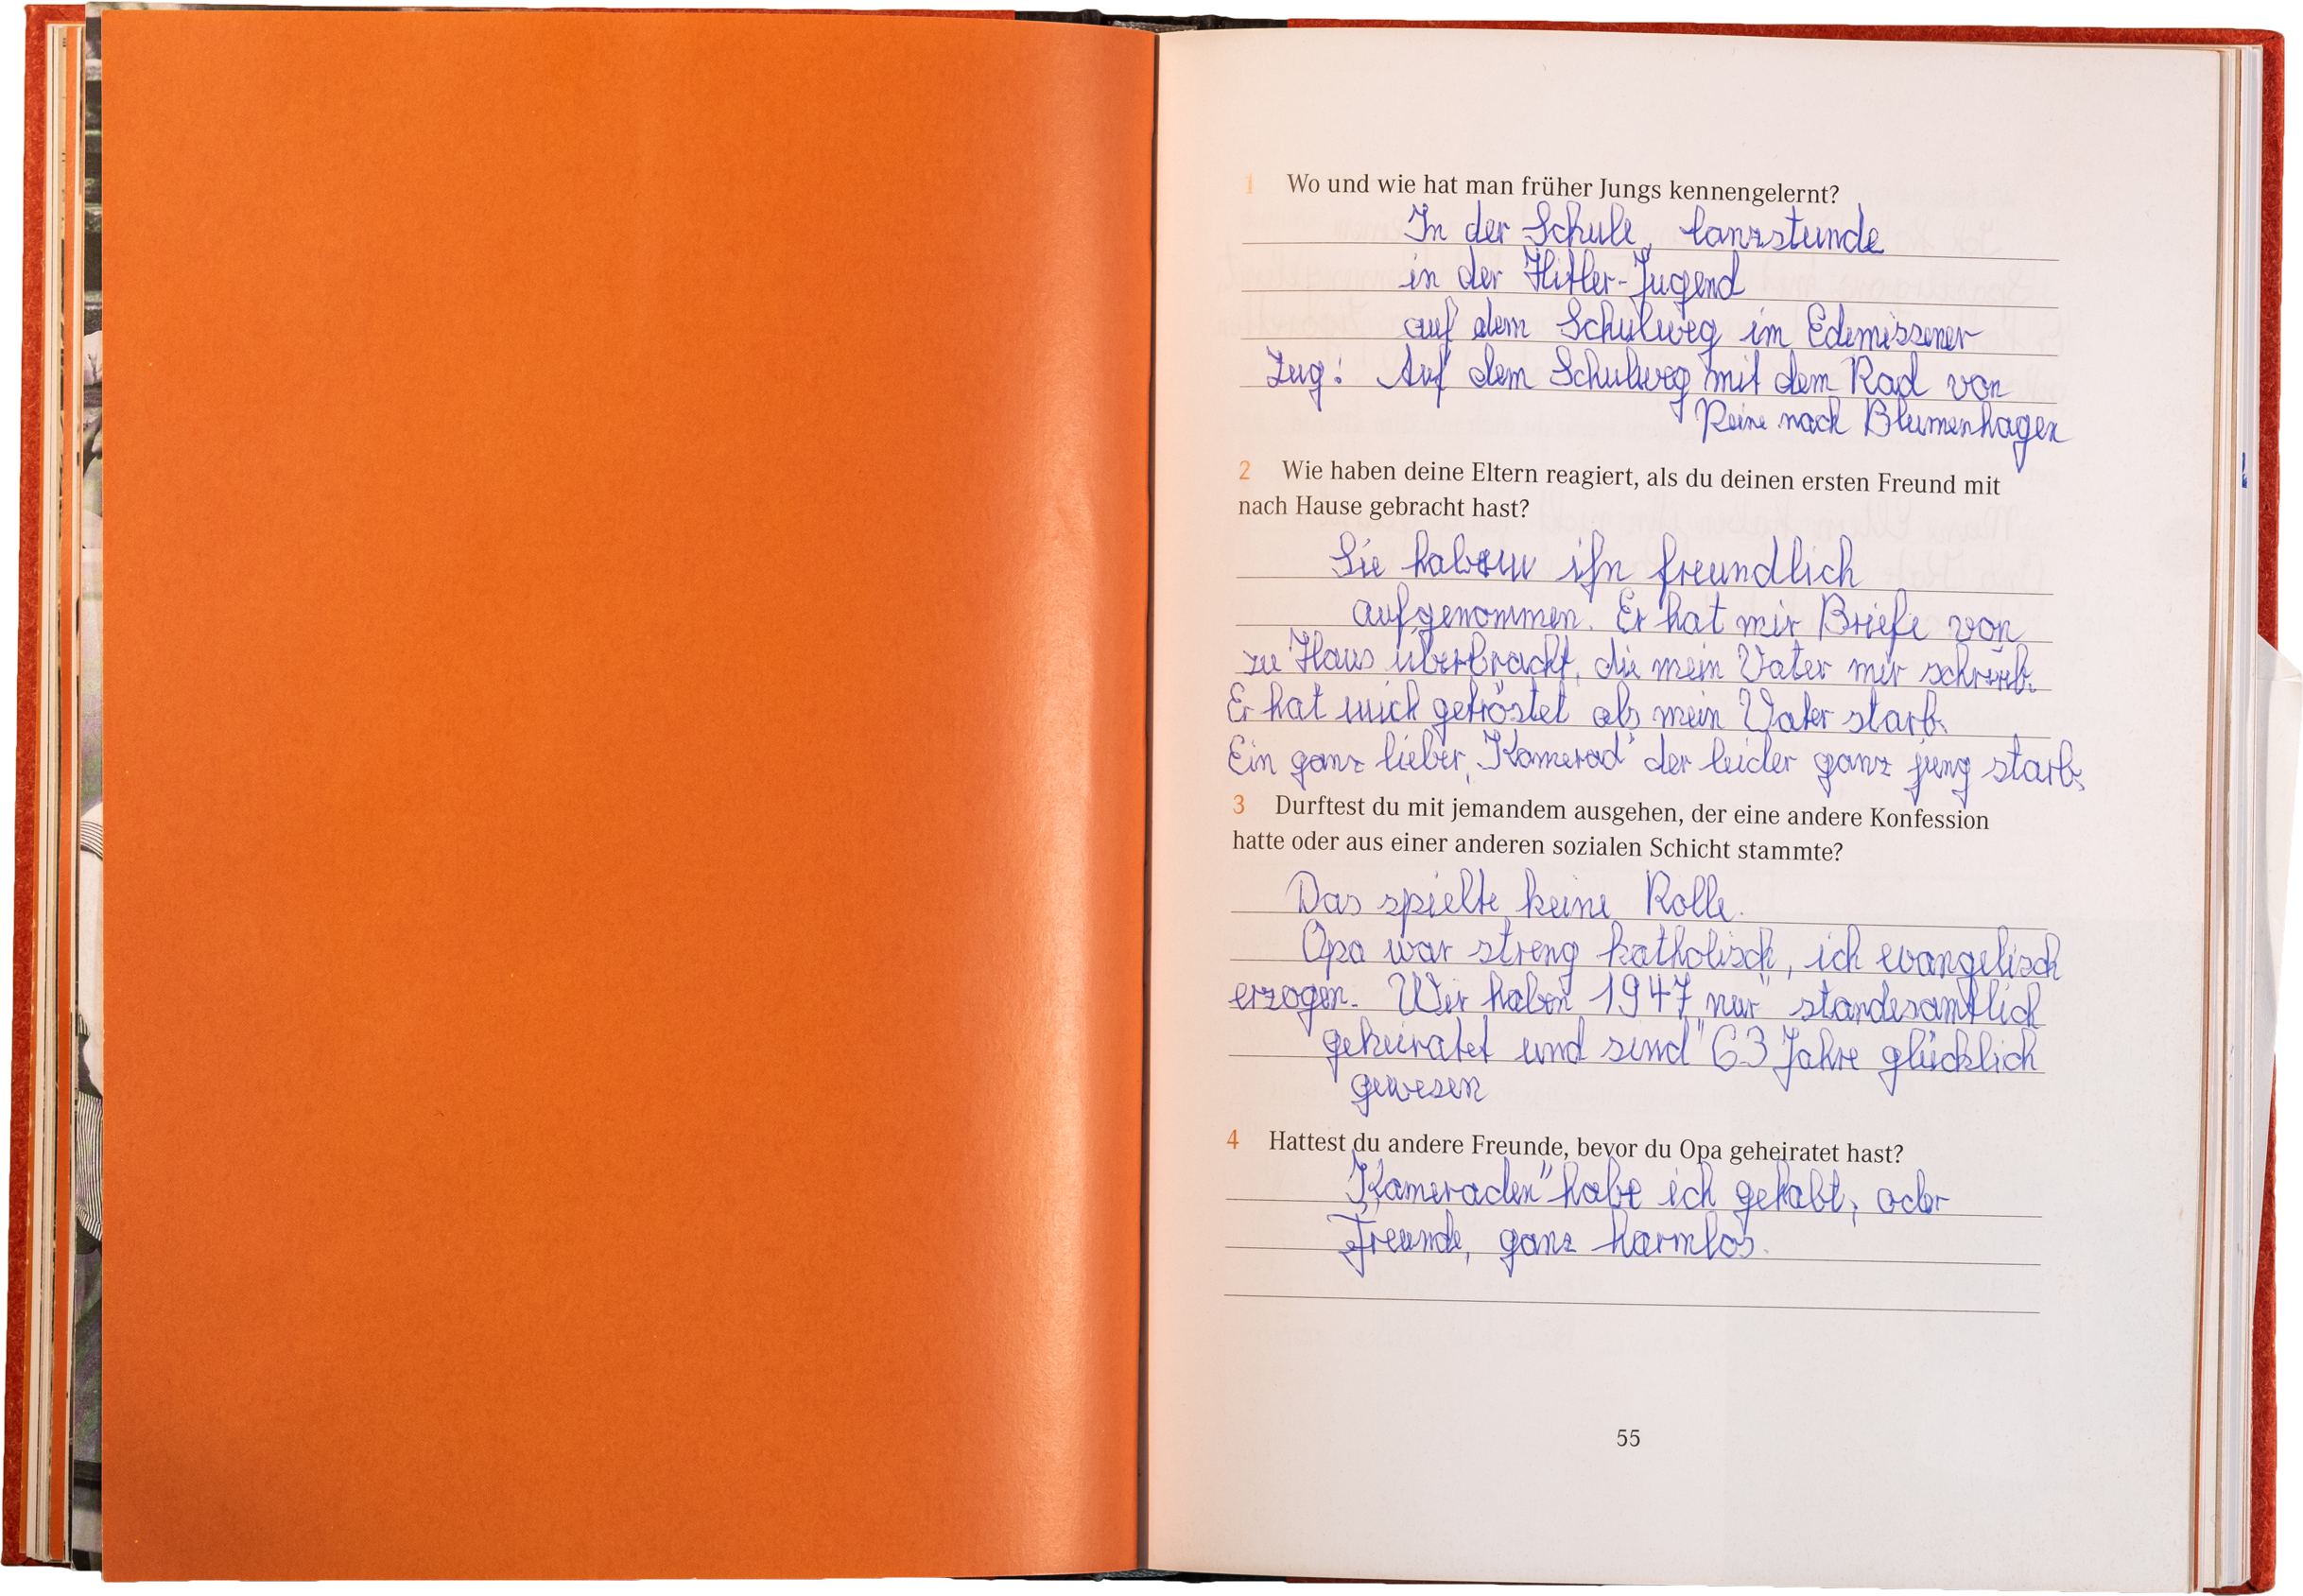 1 Wo und wie hat man früher Jungs kennengelernt?
In der Schule, Tanzstunde
in der Hitler-Jugend
auf dem Schulweg im Edemissener
Zug! Auf dem Schulweg mit dem Rad von
Peine nach Blumenhagen
2 Wie haben deine Eltern reagiert, als du deinen ersten Freund mit
nach Hause gebracht hast?
Sie haben ihn freundlich
aufgenommen. Er hat mir Briefe von
zu Haus überbracht, die mein Vater mir schrieb.
Er hat mich getröstet als mein Vater starb.
Ein ganz lieber „Kamerad" der leider ganz jung starb.
3 Durftest du mit jemandem ausgehen, der eine andere Konfession
hatte oder aus einer anderen sozialen Schicht stammte?
Das spielte keine Rolle.
Opa war streng katholisch, ich evangelisch
erzogen. Wir haben 1947 „nur" standesamtlich
geheiratet und sind 63 Jahre glücklich
gewesen
4 Hattest du andere Freunde, bevor du Opa geheiratet hast?
„Kameraden" habe ich gehabt, oder
Freunde, ganz harmlos.
55